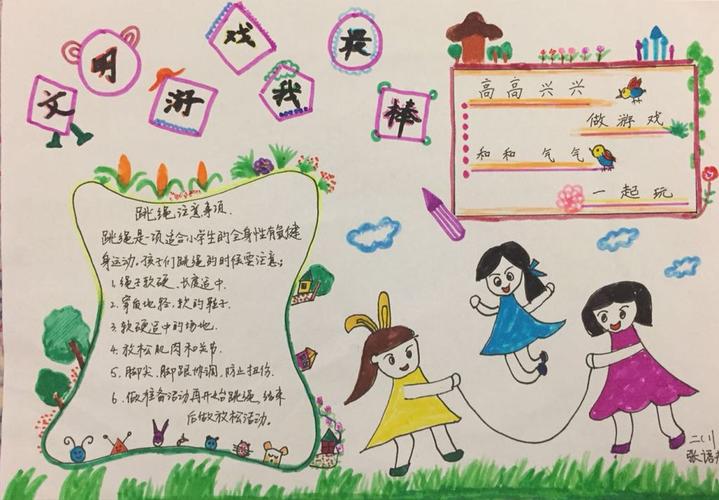 文明游戏我最棒
高高兴兴
做游戏
和和气气
一起玩
跳绳注意事项.
跳绳是一项适合小学生的全身性有氧健
身运动.孩子们跳绳的时候要注意:
1.绳子软硬、长度适中.
2.穿质地轻、软的鞋子.
3.软硬适中的场地.
4.放松肌肉和关节.
5.脚尖、脚跟协调,防止扭伤.
6.做准备活动再开始跳绳,结束
后做放松活动。
张语